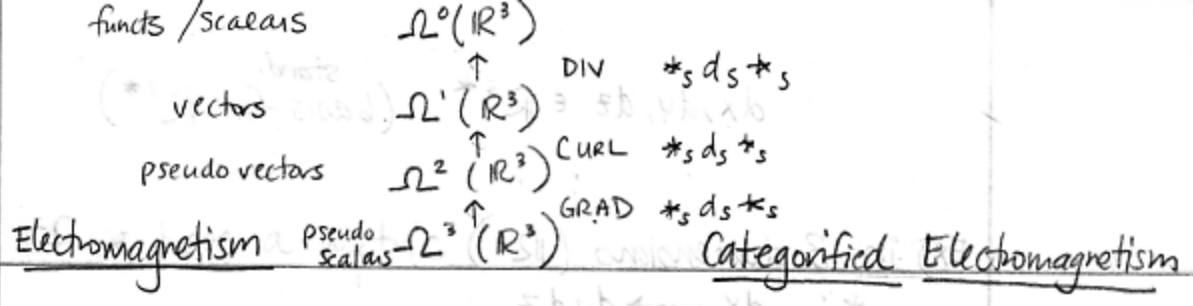 functs / scalars Ω⁰(ℝ³)
↑ DIV *ₛ dₛ *ₛ
vectors Ω¹(ℝ³)
↑ CURL *ₛ dₛ *ₛ
pseudo vectors Ω²(ℝ³)
↑ GRAD *ₛ dₛ *ₛ
Electromagnetism pseudo scalars Ω³(ℝ³) Categorified Electromagnetism